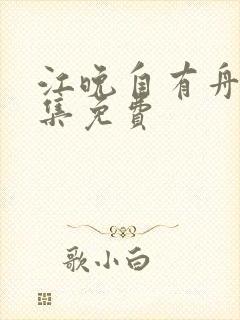 江晚自有舟
集免费
歌小白